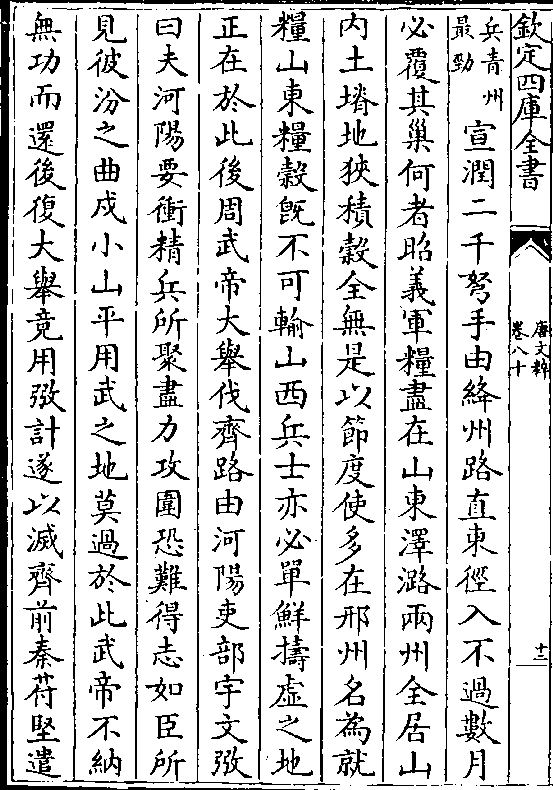 欽定四庫全書
唐文粹
卷八十
十三
兵青州
最勁
宣潤二千弩手由絳州路直東徑入不過數月
必覆其巢何者昭義軍糧盡在山東澤潞兩州全居山
内土塉地狹積榖全無是以節度使多在邢州名為就
糧山東糧榖旣不可輸山西兵士亦必單鮮擣虛之地
正在於此後周武帝大舉伐齊路由河陽吏部宇文㢸
曰夫河陽要衝精兵所聚盡力攻圍恐難得志如臣所
見彼汾之曲戍小山平用武之地莫過於此武帝不納
無功而還後復大舉竟用㢸計遂以滅齊前秦苻堅遣